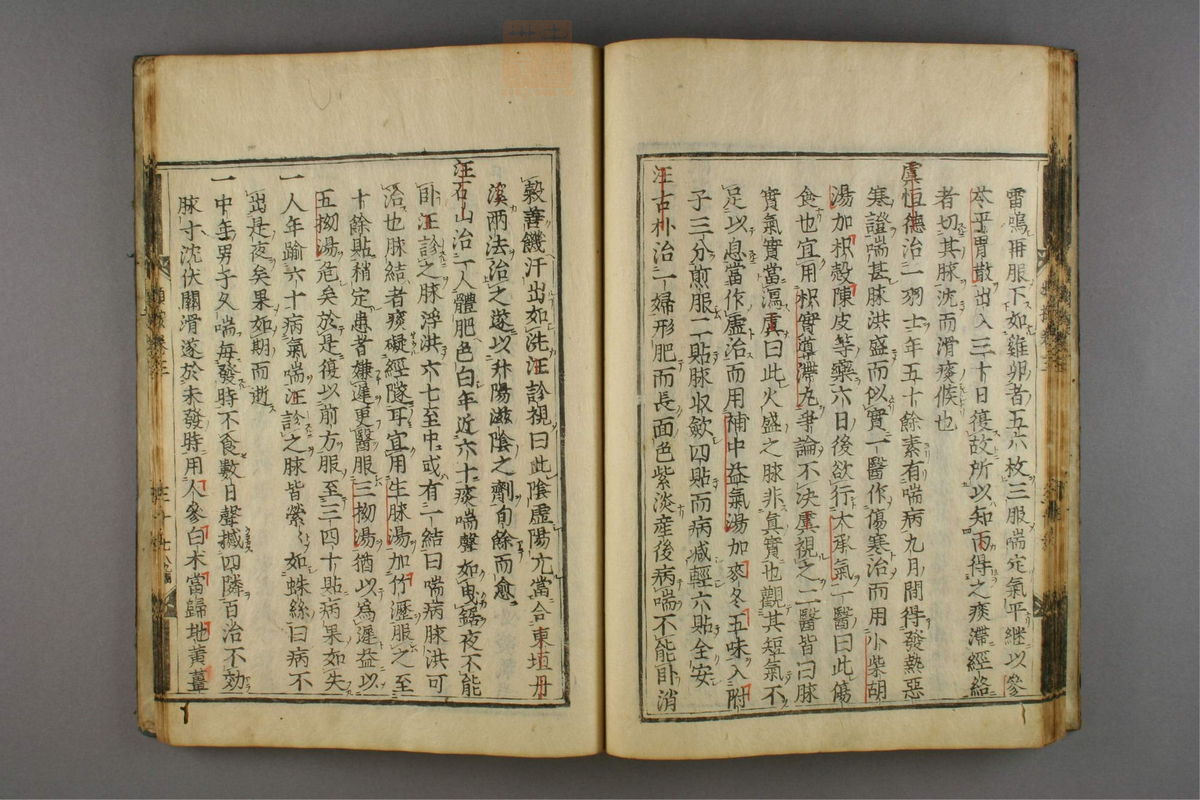 雷鳴再服下如雞卵者五六枚三服喘定氣平繼以參
苓平胃散出入三十日復故所以知雨得之痰滯經絡
者切其脉沈而滑痰候也
虞恒德治一羽士年五十餘素有喘病九月間得發熱惡
寒證喘甚脉洪盛而似實一醫作傷寒治而用小柴胡
湯加枳殼陳皮等藥六日後欲行大承氣一醫曰此傷
食也宜用枳實導滯丸爭論不決虞視之二醫皆曰脉
實氣實當瀉虞曰此火盛之脉非真實也觀其短氣不
足以息當作虛治而用補中益氣湯加麥冬五味入附
子三分煎服二貼脉收歛四貼而病減輕六貼全安
汪古朴治一婦形肥而長面色紫淡産後病喘不能卧消
穀善饑汗出如洗汪診視曰此陰虛陽亢當合東垣丹
溪兩法治之遂以升陽滋陰之劑旬餘而愈
汪石山治一人體肥色白年近六十痰喘聲如曳鋸夜不能
卧汪診之脉浮洪六七至中或有一結曰喘病脉洪可
治也脉結者痰礙經隧耳宜用生脉湯加竹瀝服之至
十餘貼稍定患者嫌遲更醫服三拗湯猶以爲遲益以
五拗湯危矣於是復以前方服至三四十貼病果如失
一人年踰六十病氣喘汪診之脉皆縈縈如蛛絲曰病不
出是夜矣果如期而逝
一中年男子久喘每發時不食數日聲撼四隣百治不効
脉寸沈伏關滑遂於未發時用人參白术當歸地黃薑